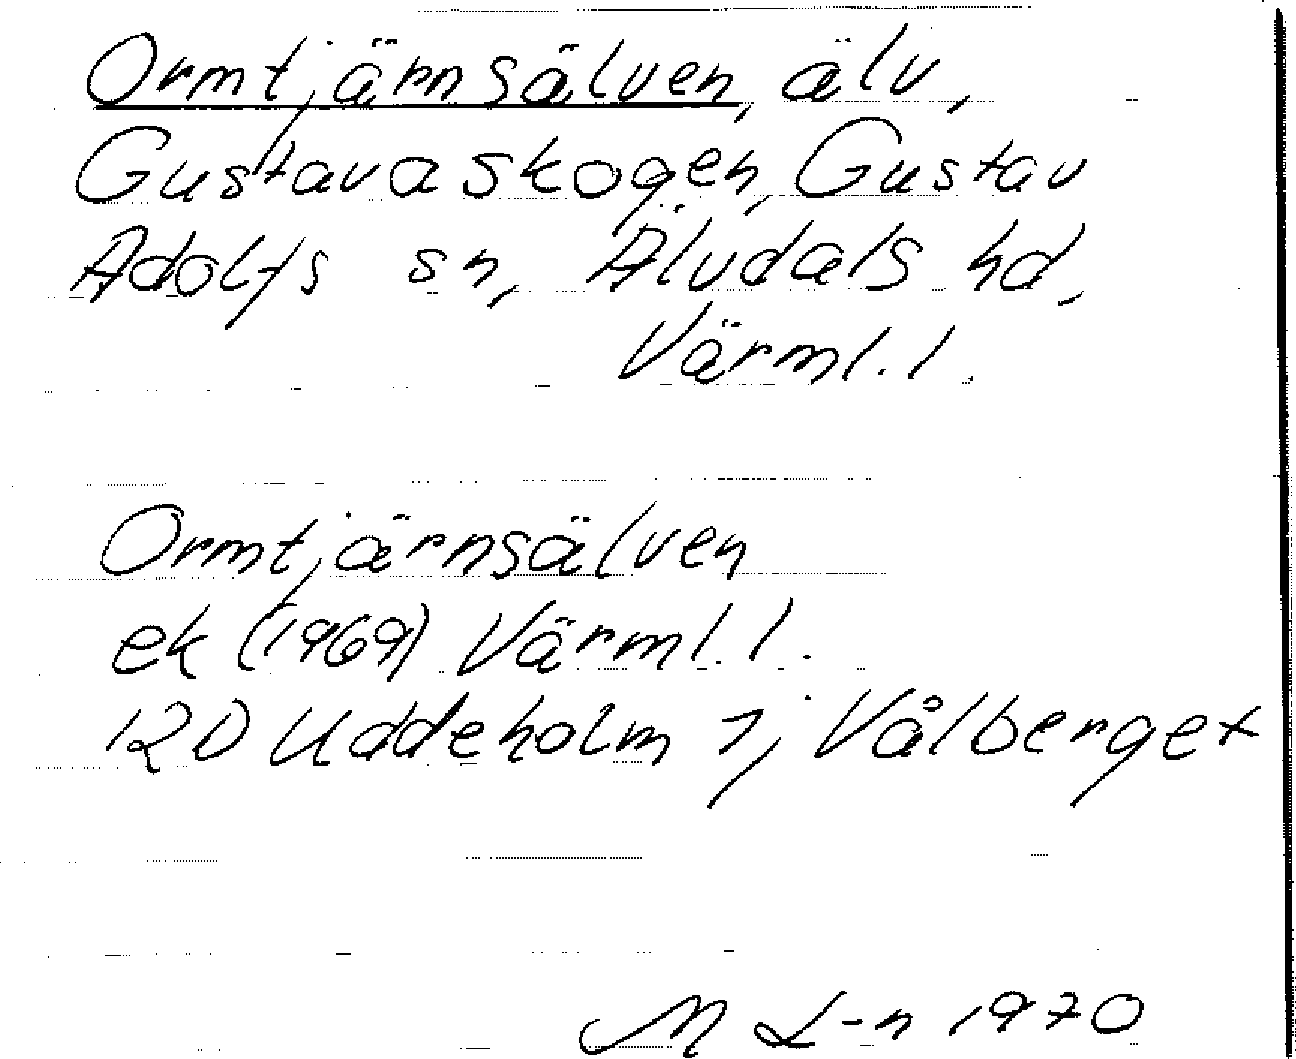 Ormtjärnsälven, älv,
Gustavaskogen, Gustav
Adolfs sn, Älvdals hd,
Värml. l.
Ormtjärnsälven
ek (1969) Värml. l.
12D Uddeholm 1j Vålberget
M L-n 1970